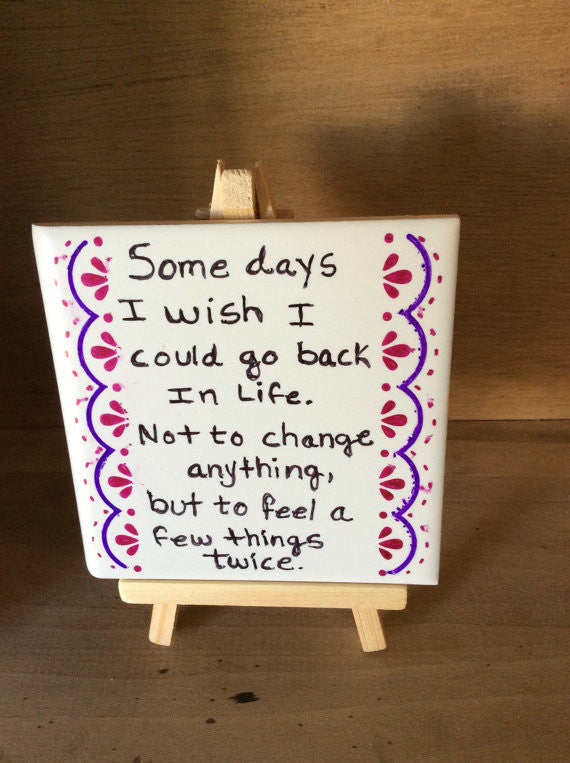 Some days
I wish I
could go back
In Life.
Not to change
anything,
but to feel a
few things
twice.